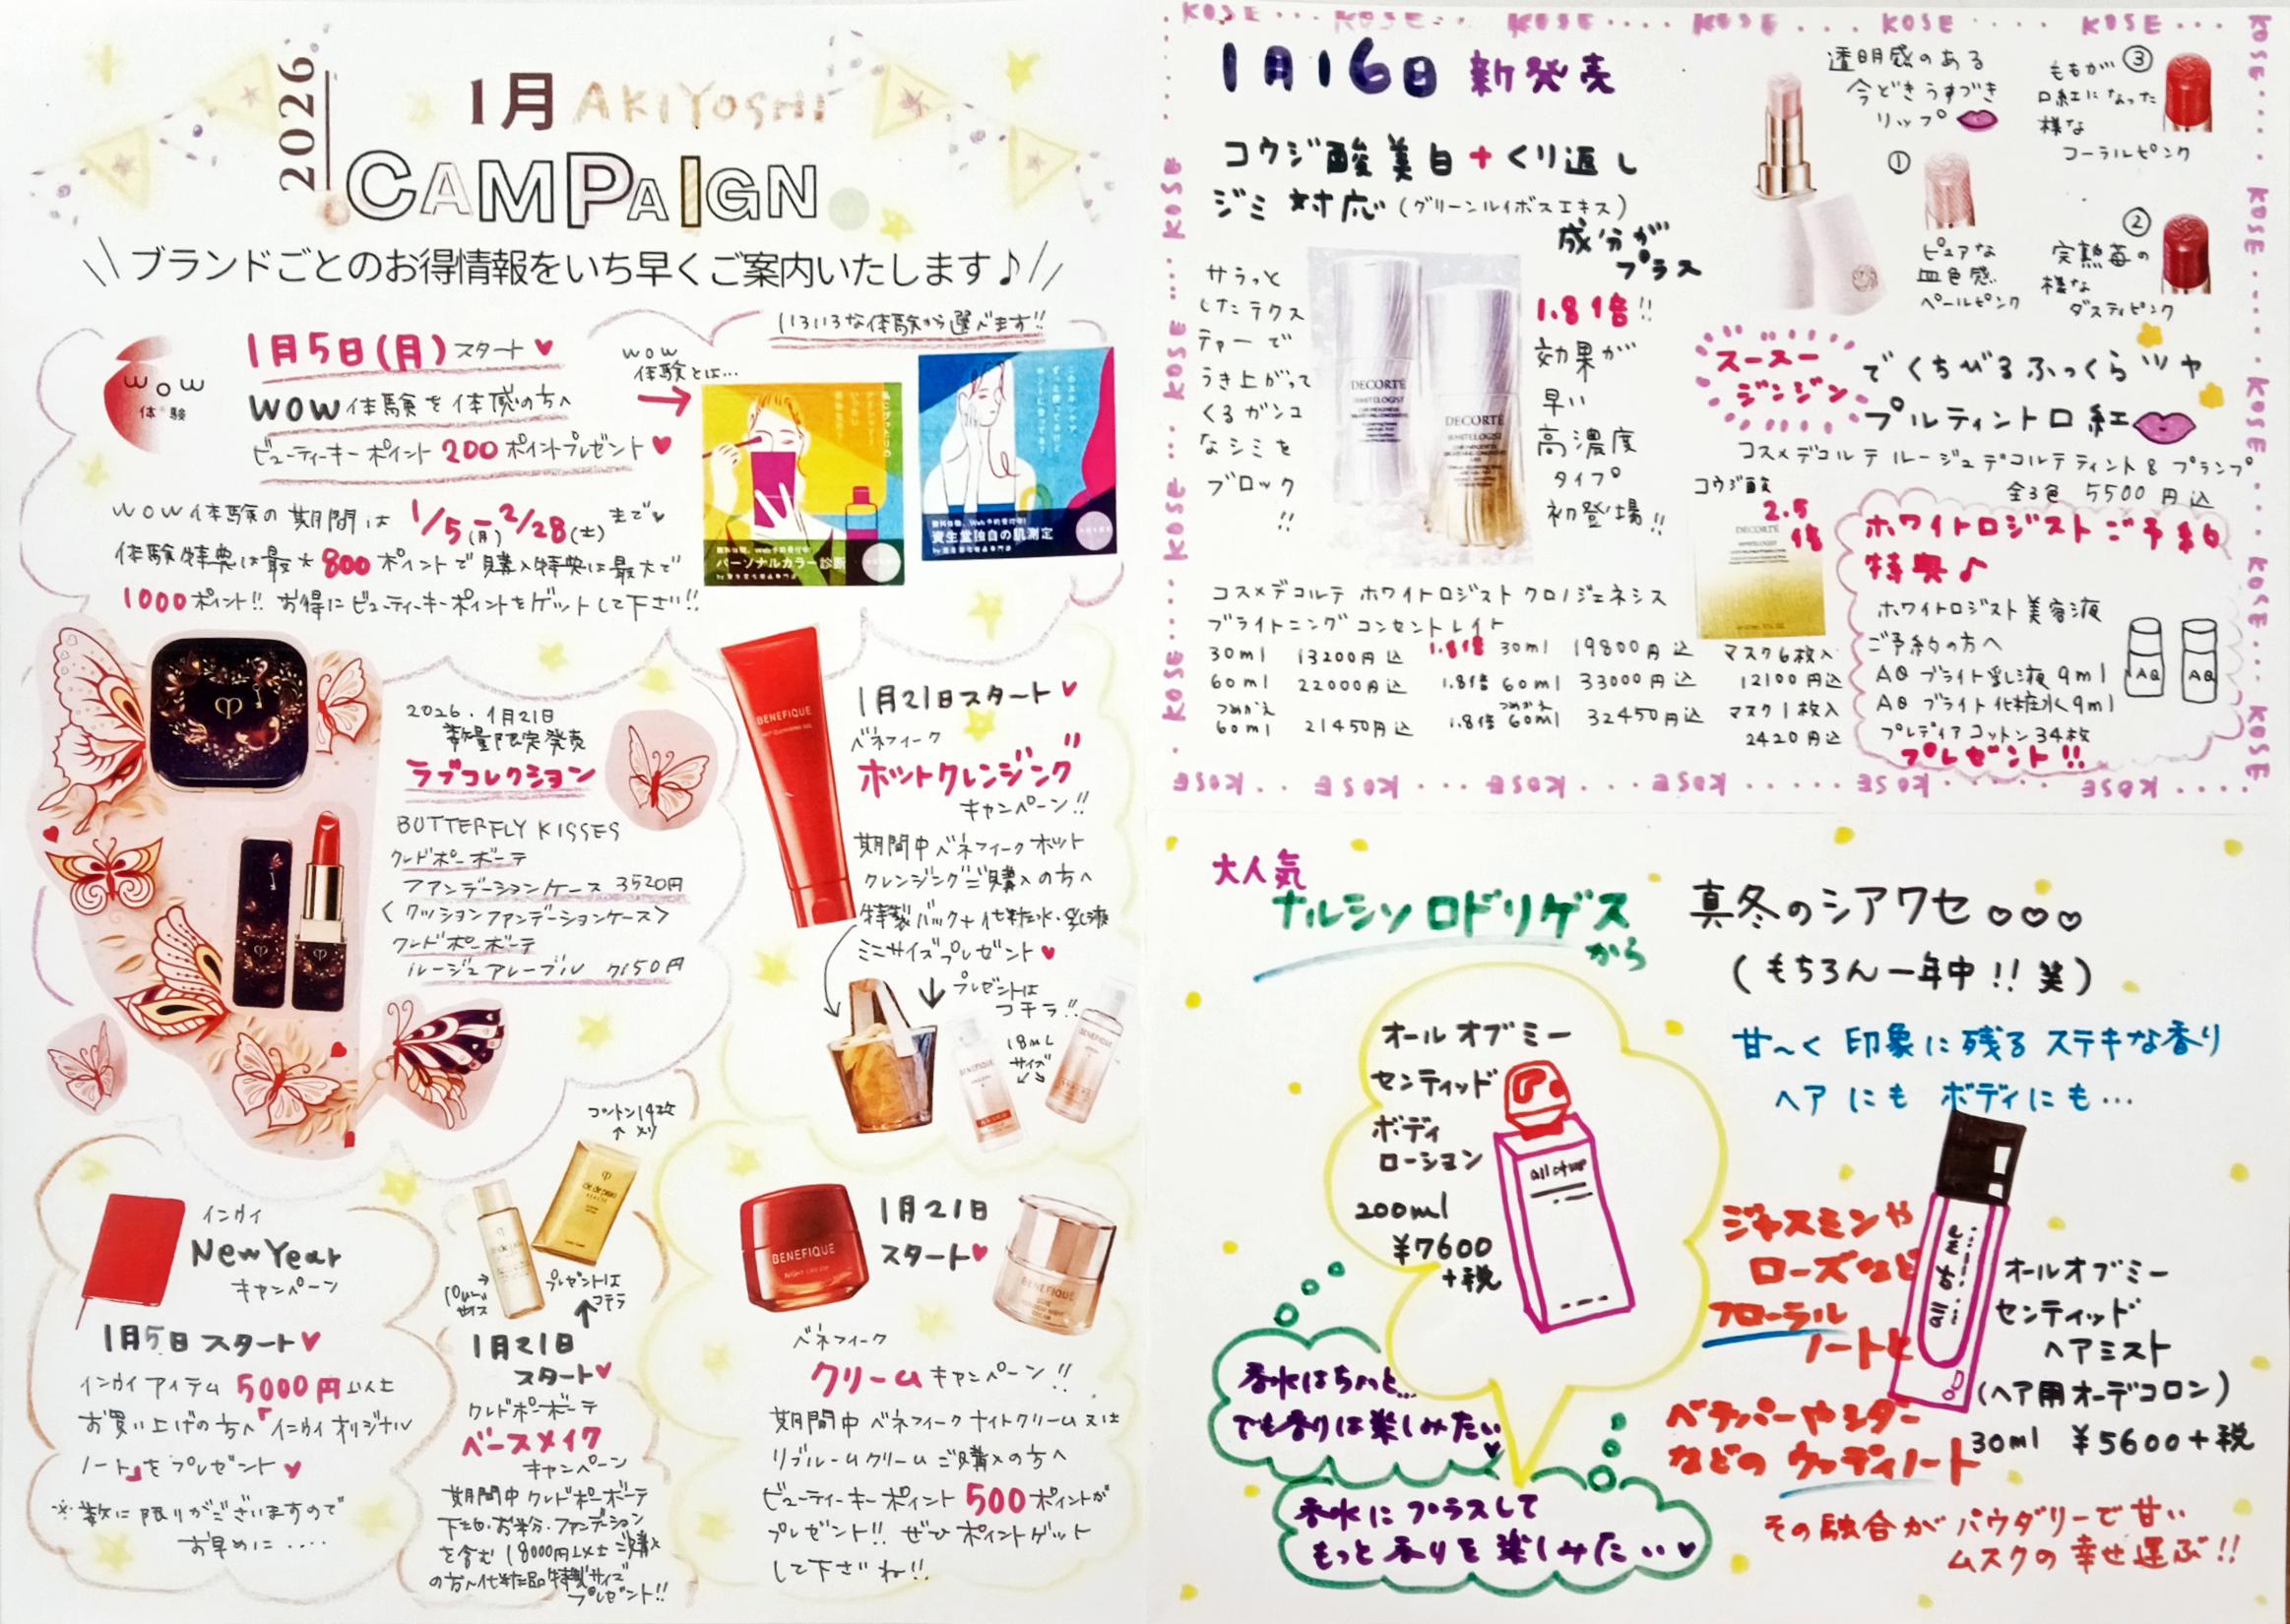 2026
1月 AKIYOSHI
CAMPAIGN
ブランドごとのお得情報をいち早くご案内いたします♪
wow
体験
1月5日(月)スタート♥
WOW体験を体感の方へ
ビューティーキーポイント 200ポイントプレゼント♥
wow
体験とは…
いろいろな体験から選べます!!
パーソナルカラー診断
資生堂独自の肌測定
wow体験の期間は 1/5(月) 2/28(土)まで
体験特典は最大800ポイントで購入特典は最大で
1000ポイント!! お得にビューティーキーポイントをゲットして下さい!!
2026.1月21日
数量限定発売
ラブコレクション
BUTTERFLY KISSES
クレドポーボーテ
ファンデーションケース 3520円
<クッションファンデーションケース>
クレドポーボーテ
ルージュアレーブル 7150円
BENEFIQUE
1月21日スタート♥
ベネフィーク
ホットクレンジング
キャンペーン!!
期間中ベネフィークホット
クレンジングご購入の方へ
特製バック+化粧水・乳液
ミニサイズプレゼント♥
プレゼントは
コチラ!!
18mL
サイズ
インウイ
New Year
キャンペーン
1月5日スタート♥
インウイアイテム 5000円以上
お買い上げの方へ「インウイオリジナル
ノート」をプレゼント♥
※数に限りがございますので
お早めに....
コットン14枚
入り
プレゼントは
コチラ
1月21日
スタート♥
クレドポーボーテ
ベースメイク
キャンペーン
期間中クレドポーボーテ
下地・お粉・ファンデーション
を含む18000円以上ご購入
の方へ化粧品特製サイズ
プレゼント!!
BENEFIQUE
1月21日
スタート♥
BENEFIQUE
ベネフィーク
クリームキャンペーン!!
期間中ベネフィークナイトクリーム又は
リブルームクリームご購入の方へ
ビューティーキーポイント500ポイントが
プレゼント!! ぜひポイントゲット
して下さいね!!
KOSE...KOSE...KOSE....KOSE...KOSE...KOSE...
1月16日 新発売
コウジ酸美白+くり返し
ジミ対応(グリーンルイボスエキス)
成分が
プラス
サラっと
したテクス
チャーで
うき上がって
くるガンコ
なシミを
ブロック
!!
DECORTÉ
WHITELOGIST
DECORTÉ
WHITELOGIST
1.8倍!!
効果が
早い
高濃度
タイプ
初登場!!
コスメデコルテ ホワイトロジスト クロノジェネシス
ブライトニング コンセントレイト
30ml 13200円込 1.8倍 30ml 19800円込
60ml 22000円込 1.8倍 60ml 33000円込
つめかえ
60ml 21450円込 1.8倍 つめかえ 60ml 32450円込
透明感のある
今どきうすづき
リップ
①
ピュアな
血色感
ペールピンク
③
ももが
口紅になった
様な
コーラルピンク
②
完熟苺の
様な
ダスティピンク
スースー
ジンジン
でくちびるふっくらツヤ
プルティント口紅
コスメデコルテ ルージュデコルテティント&プランプ
全3色 5500円込
コウジ酸
2.5倍
DECORTÉ
マスク6枚入
12100円込
マスク1枚入
2420円込
ホワイトロジストご予約
特典♪
ホワイトロジスト美容液
ご予約の方へ
AQ ブライト乳液 9ml
AQ ブライト化粧水 9ml
プレディアコットン34枚
プレゼント!!
AQ AQ
大人気
ナルシソロドリゲス
から
真冬のシアワセ♡♡♡
(もちろん一年中!!笑)
甘〜く印象に残るステキな香り
ヘアにもボディにも…
オールオブミー
センティッド
ボディ
ローション
200ml
¥7600
+税
all of me
ジャスミンや
ローズなど
フローラル
ノートと
ベチバーやシダー
などのウッディノート
all of me
オールオブミー
センティッド
ヘアミスト
(ヘア用オーデコロン)
30ml ¥5600+税
香水はちょっと…
でも香りは楽しみたい♥
香水にプラスして
もっと香りを楽しみたい♥
その融合がパウダリーで甘い
ムスクの幸せ運ぶ!!